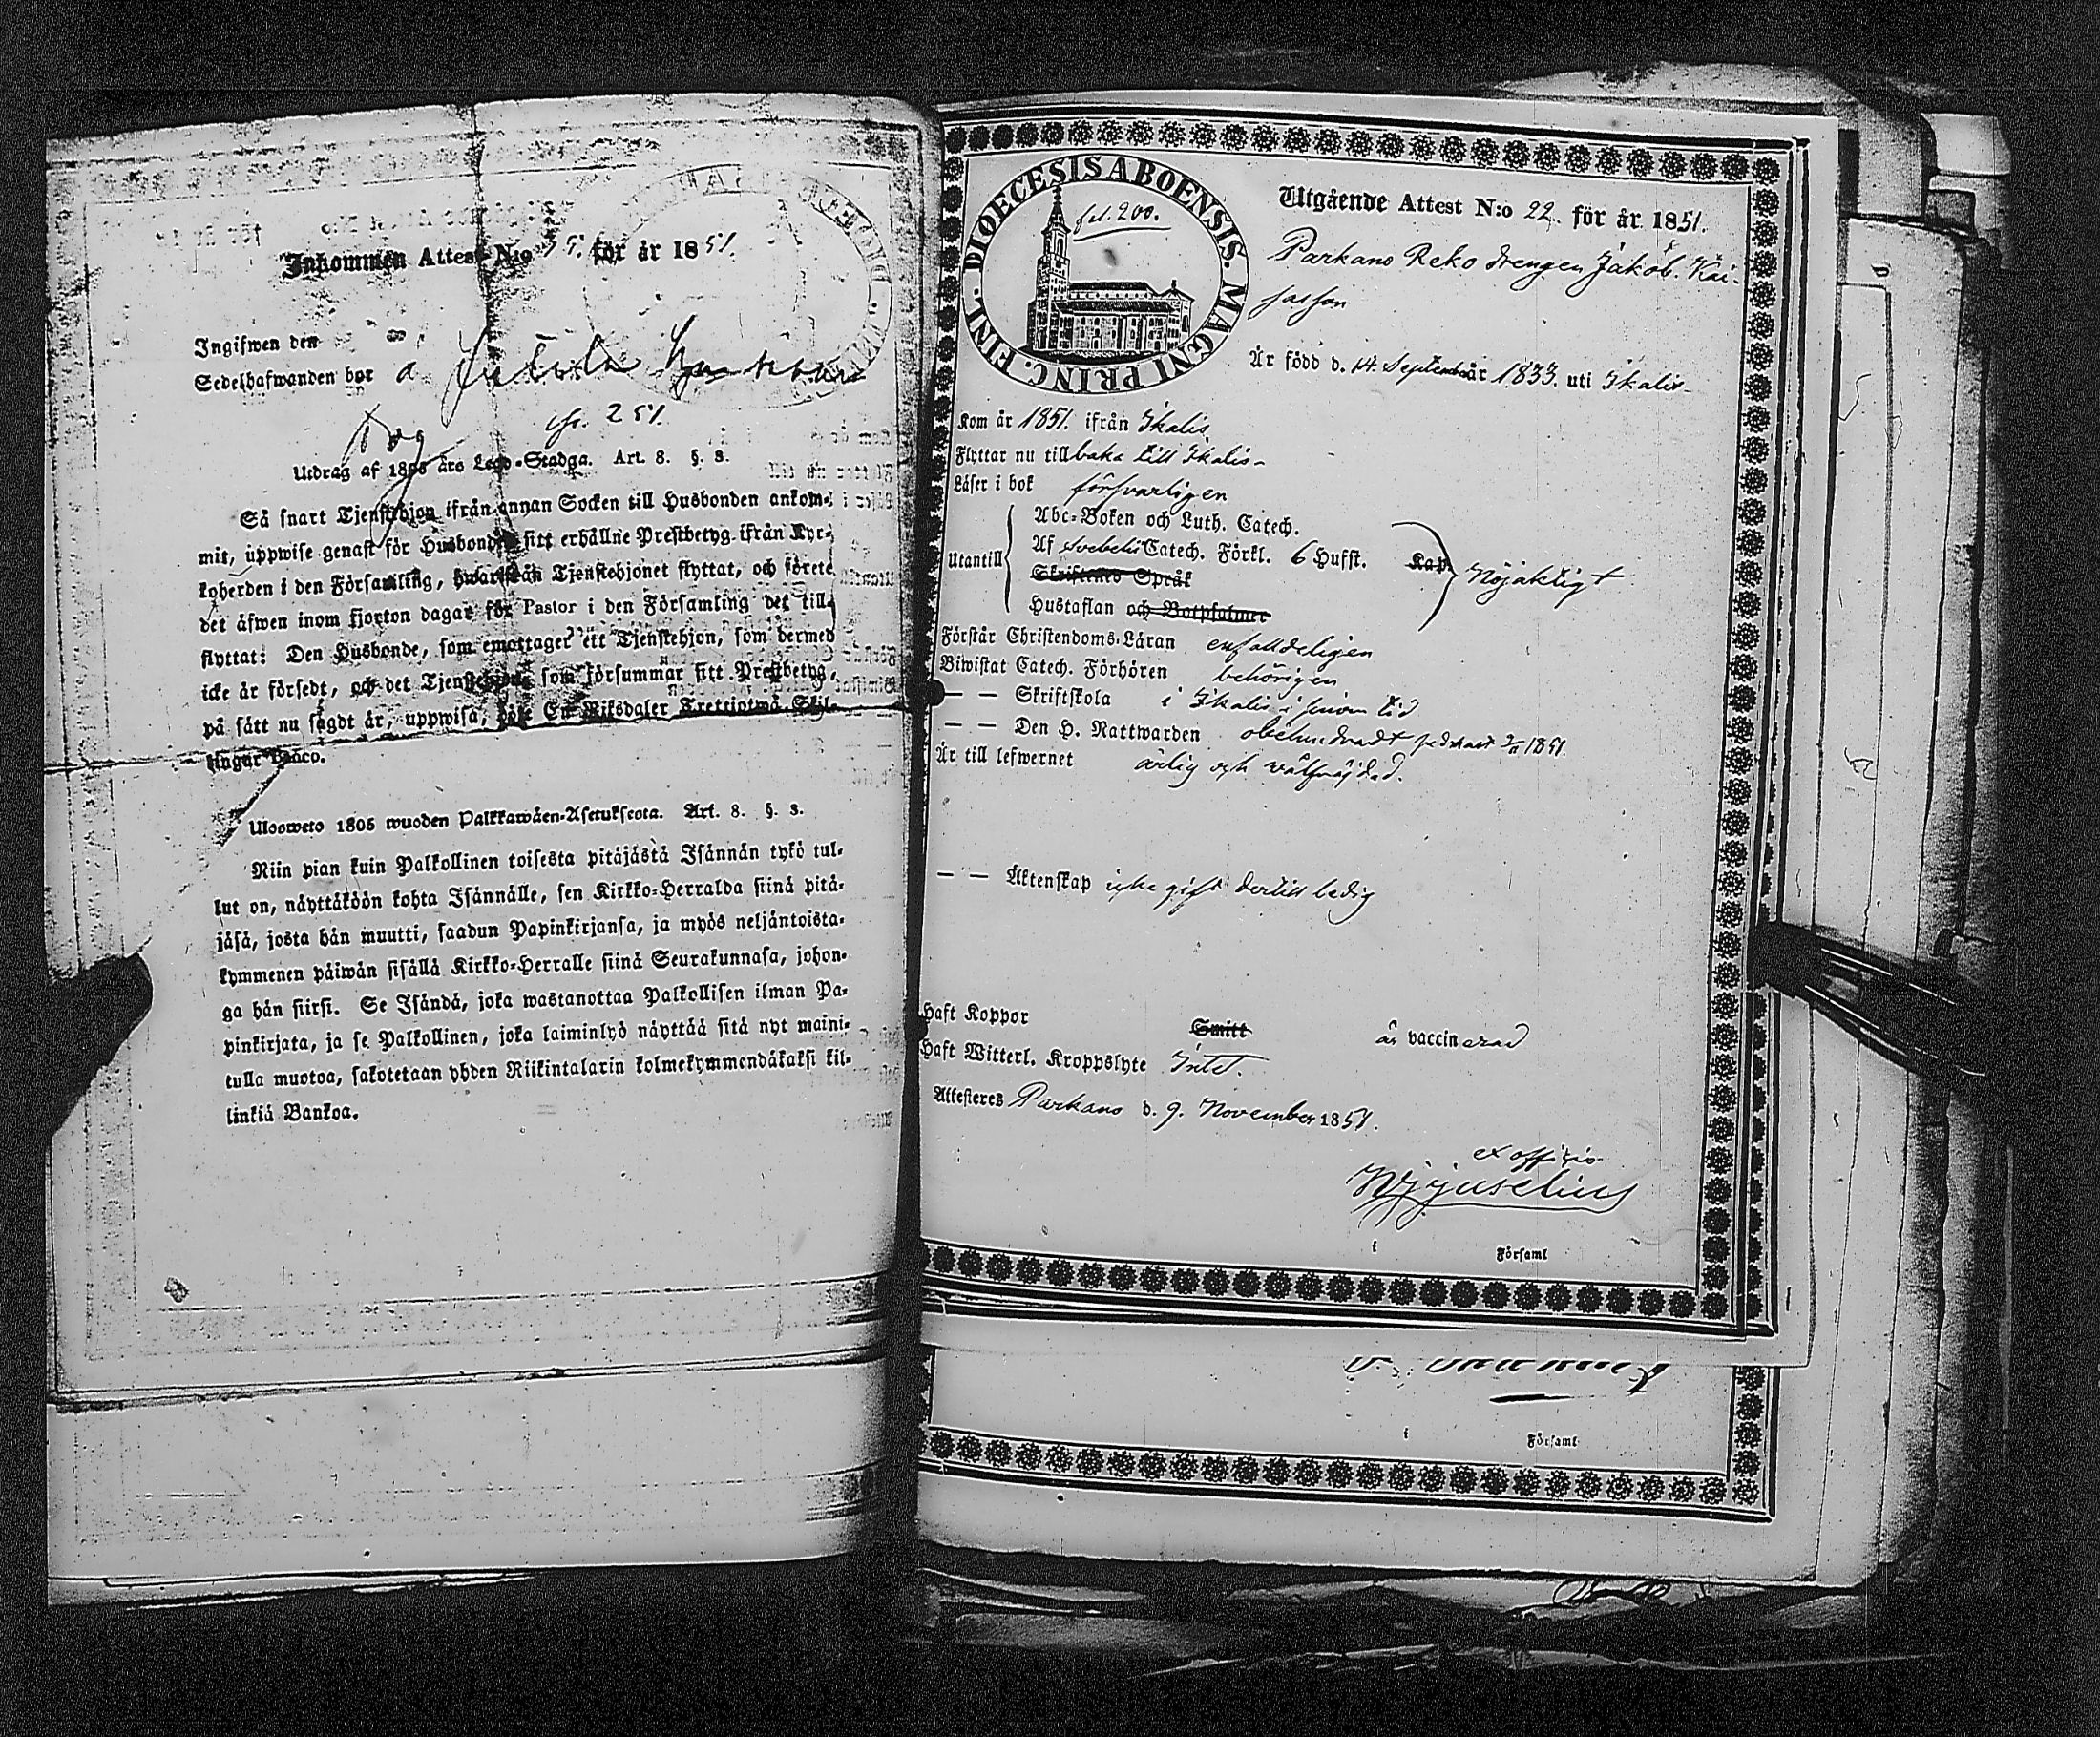 Inkommen Attest N:o 55. för år 1851.
Ingifwen den
Sedelhafwanden bor å
fr. 251.
Utdrag af 1805 års Lego-Stadga. Art. 8. §. 3.
Så snart Tjenstehjon ifrån annan Socken till Husbonden ankom-
mit, uppwise genast för Husbonden sitt erhållne Prestbetyg ifrån Kyr-
koherden i den Församling, hwarifrån Tjenstehjonet flyttat, och förete
det äfwen inom fjorton dagar för Pastor i den Församling det till-
flyttat: Den Husbonde, som emottager ett Tjenstehjon, som dermed
icke är försedt, och det Tjenstehjon som försummar sitt Prestbetyg,
på sätt nu sagdt är, uppwisa, böte En Riksdaler Trettiotwå Skil-
lingar Banco.
Ulosweto 1805 wuoden Palkkawäen-Asetuksesta. Art. 8. §. 3.
Niin pian kuin Palkollinen toisesta pitäjästä Isännän tykö tul-
lut on, näyttäköön kohta Isännälle, sen Kirkko-Herralda siinä pitä-
jäsä, josta hän muutti, saadun Papinkirjansa, ja myös neljäntoista-
kymmenen päiwän sisällä Kirkko-Herralle siinä Seurakunnasa, johon-
ga hän siirsi. Se Isändä, joka wastanottaa Palkollisen ilman Pa-
pinkirjata, ja se Palkollinen, joka laiminlyö näyttää sitä nyt maini-
tulla muotoa, sakotetaan yhden Riikintalarin kolmekymmendäkaksi kil-
linkiä Bankoa.
DIOECESIS ABOENSIS. MAGNI PRINC. FINL.
fol. 200.
Utgående Attest N:o 22. för år 1851.
Parkano Reko drengen Jakob. Kai-
sasson
Är född d. 14. September år 1833. uti Ikalis
Kom år 1851. ifrån Ikalis
Flyttar nu tillbaka till Ikalis
Läser i bok försvarligen
Abc-Boken och Luth. Catech.
Utantill Af Svebelii Catech. Förkl. 6 Hufst. Kap. Nöjaktigt
Skriftenes Språk
Hustaflan och Botpsalmer
Förstår Christendoms-Läran enfaldeligen
Biwistat Catech. Förhören behörigen
— — Skriftskola i Ikalis i sinom tid
— — Den H. Nattwarden obehindradt sednast 2/11 1851.
Är till lefwernet ärlig och välfräjdad.
— — Äktenskap icke gift dertill ledig
Haft Koppor Smitt är vaccinerad
Haft Witterl. Kroppslyte Intet.
Attesteres Parkano d. 9. November 1851.
ex officio
i Församl
i Församl